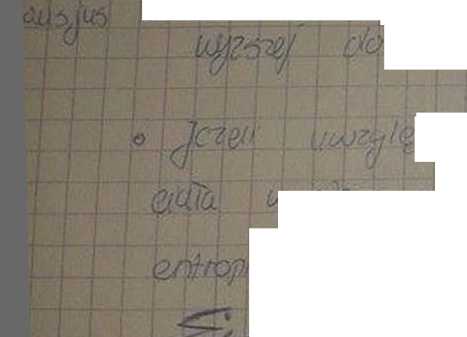 ausjus
wyższej do
• Jeżeli uwzglę
ciała
entropi